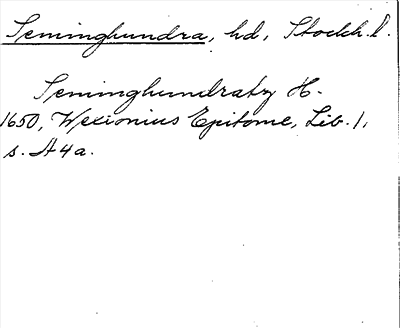 Seminghundra, hd, Stockh. l.
Seminghundratz H.
1650, Wexionius Epitome, Lib. 1,
s. A4a.